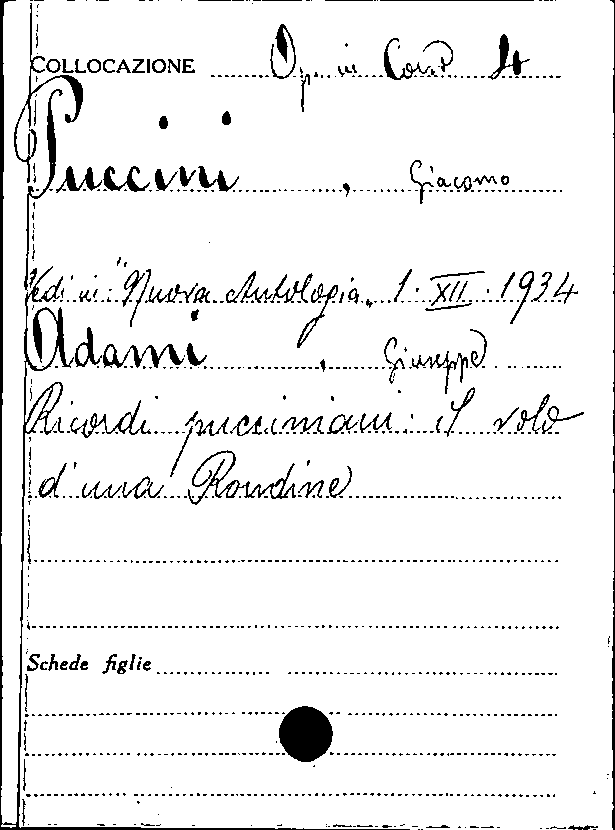 COLLOCAZIONE Op. in Cont 4
Puccini, Giacomo
Vedi in: "Nuova Antologia" 1. XII. 1934
Adami, Giuseppe
Ricordi pucciniani: il volo
d'una Rondine
Schede figlie